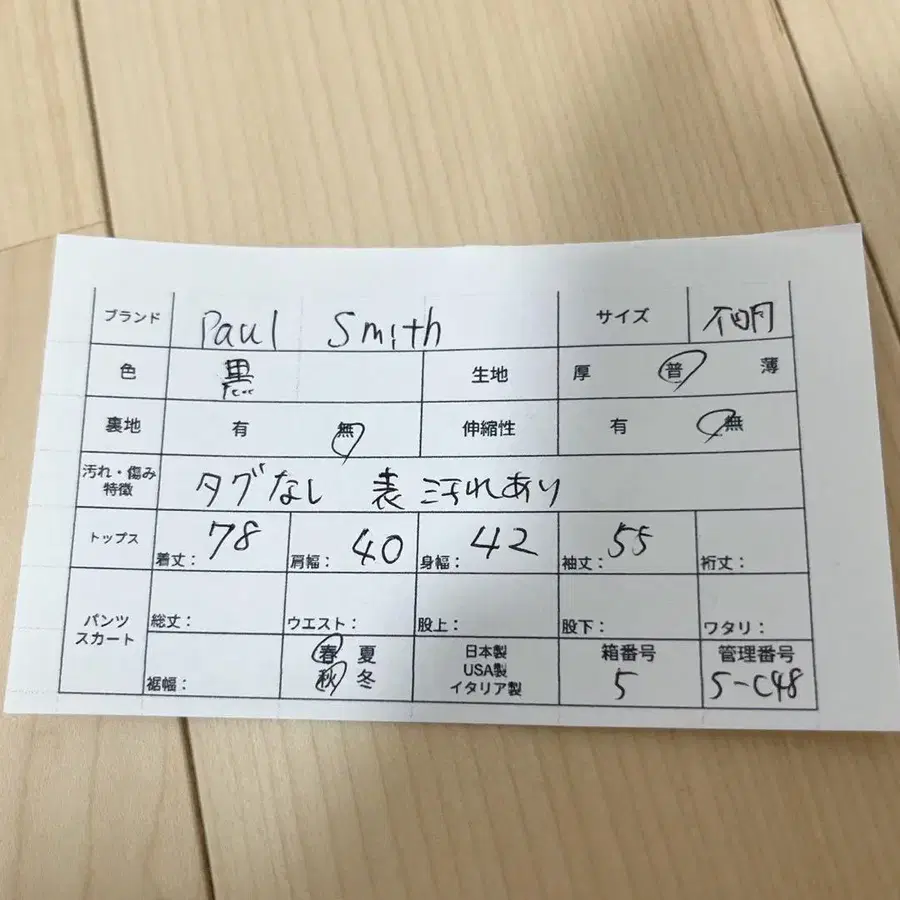 ブランド Paul Smith サイズ 不明
色 黒 生地 厚 普 薄
裏地 有 無 伸縮性 有 無
汚れ・傷み
特徴 タグなし 表 汚れあり
トップス 着丈: 78 肩幅: 40 身幅: 42 袖丈: 55 裄丈:
パンツ
スカート 総丈: ウエスト: 股上: 股下: ワタリ:
裾幅: 春 夏 日本製 箱番号 管理番号
秋 冬 USA製 5 5-C48
イタリア製